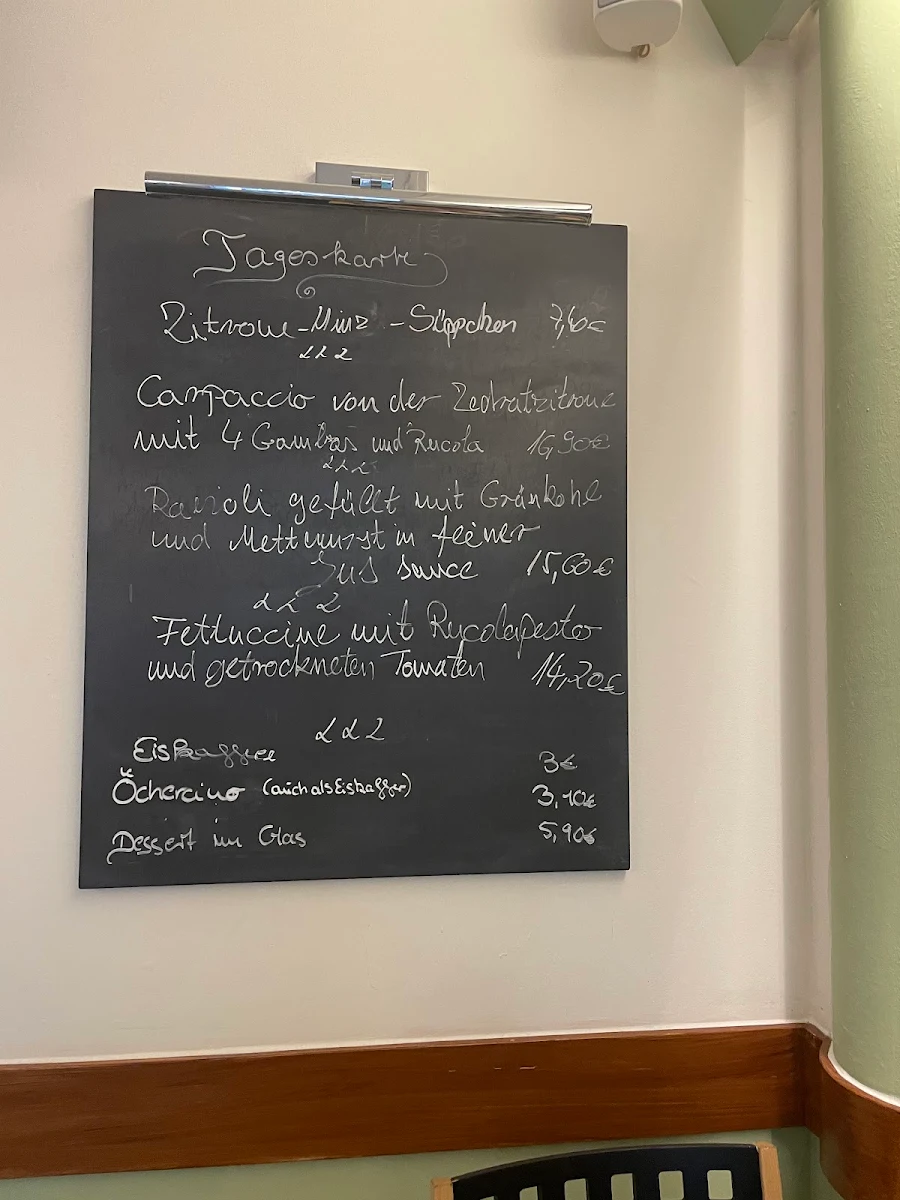 Tageskarte
Zitrone-Minz-Süppchen 7,40€
Carpaccio von der Zedratzitrone
mit 4 Gambas und Rucola 16,90€
Ravioli gefüllt mit Grünkohl
und Mettwurst in feiner
Jus sauce 15,60€
Fettuccine mit Rucolapesto
und getrockneten Tomaten 14,20€
Eiskaffee 3€
Öchercino (auch als Eiskaffee) 3,10€
Dessert im Glas 5,90€